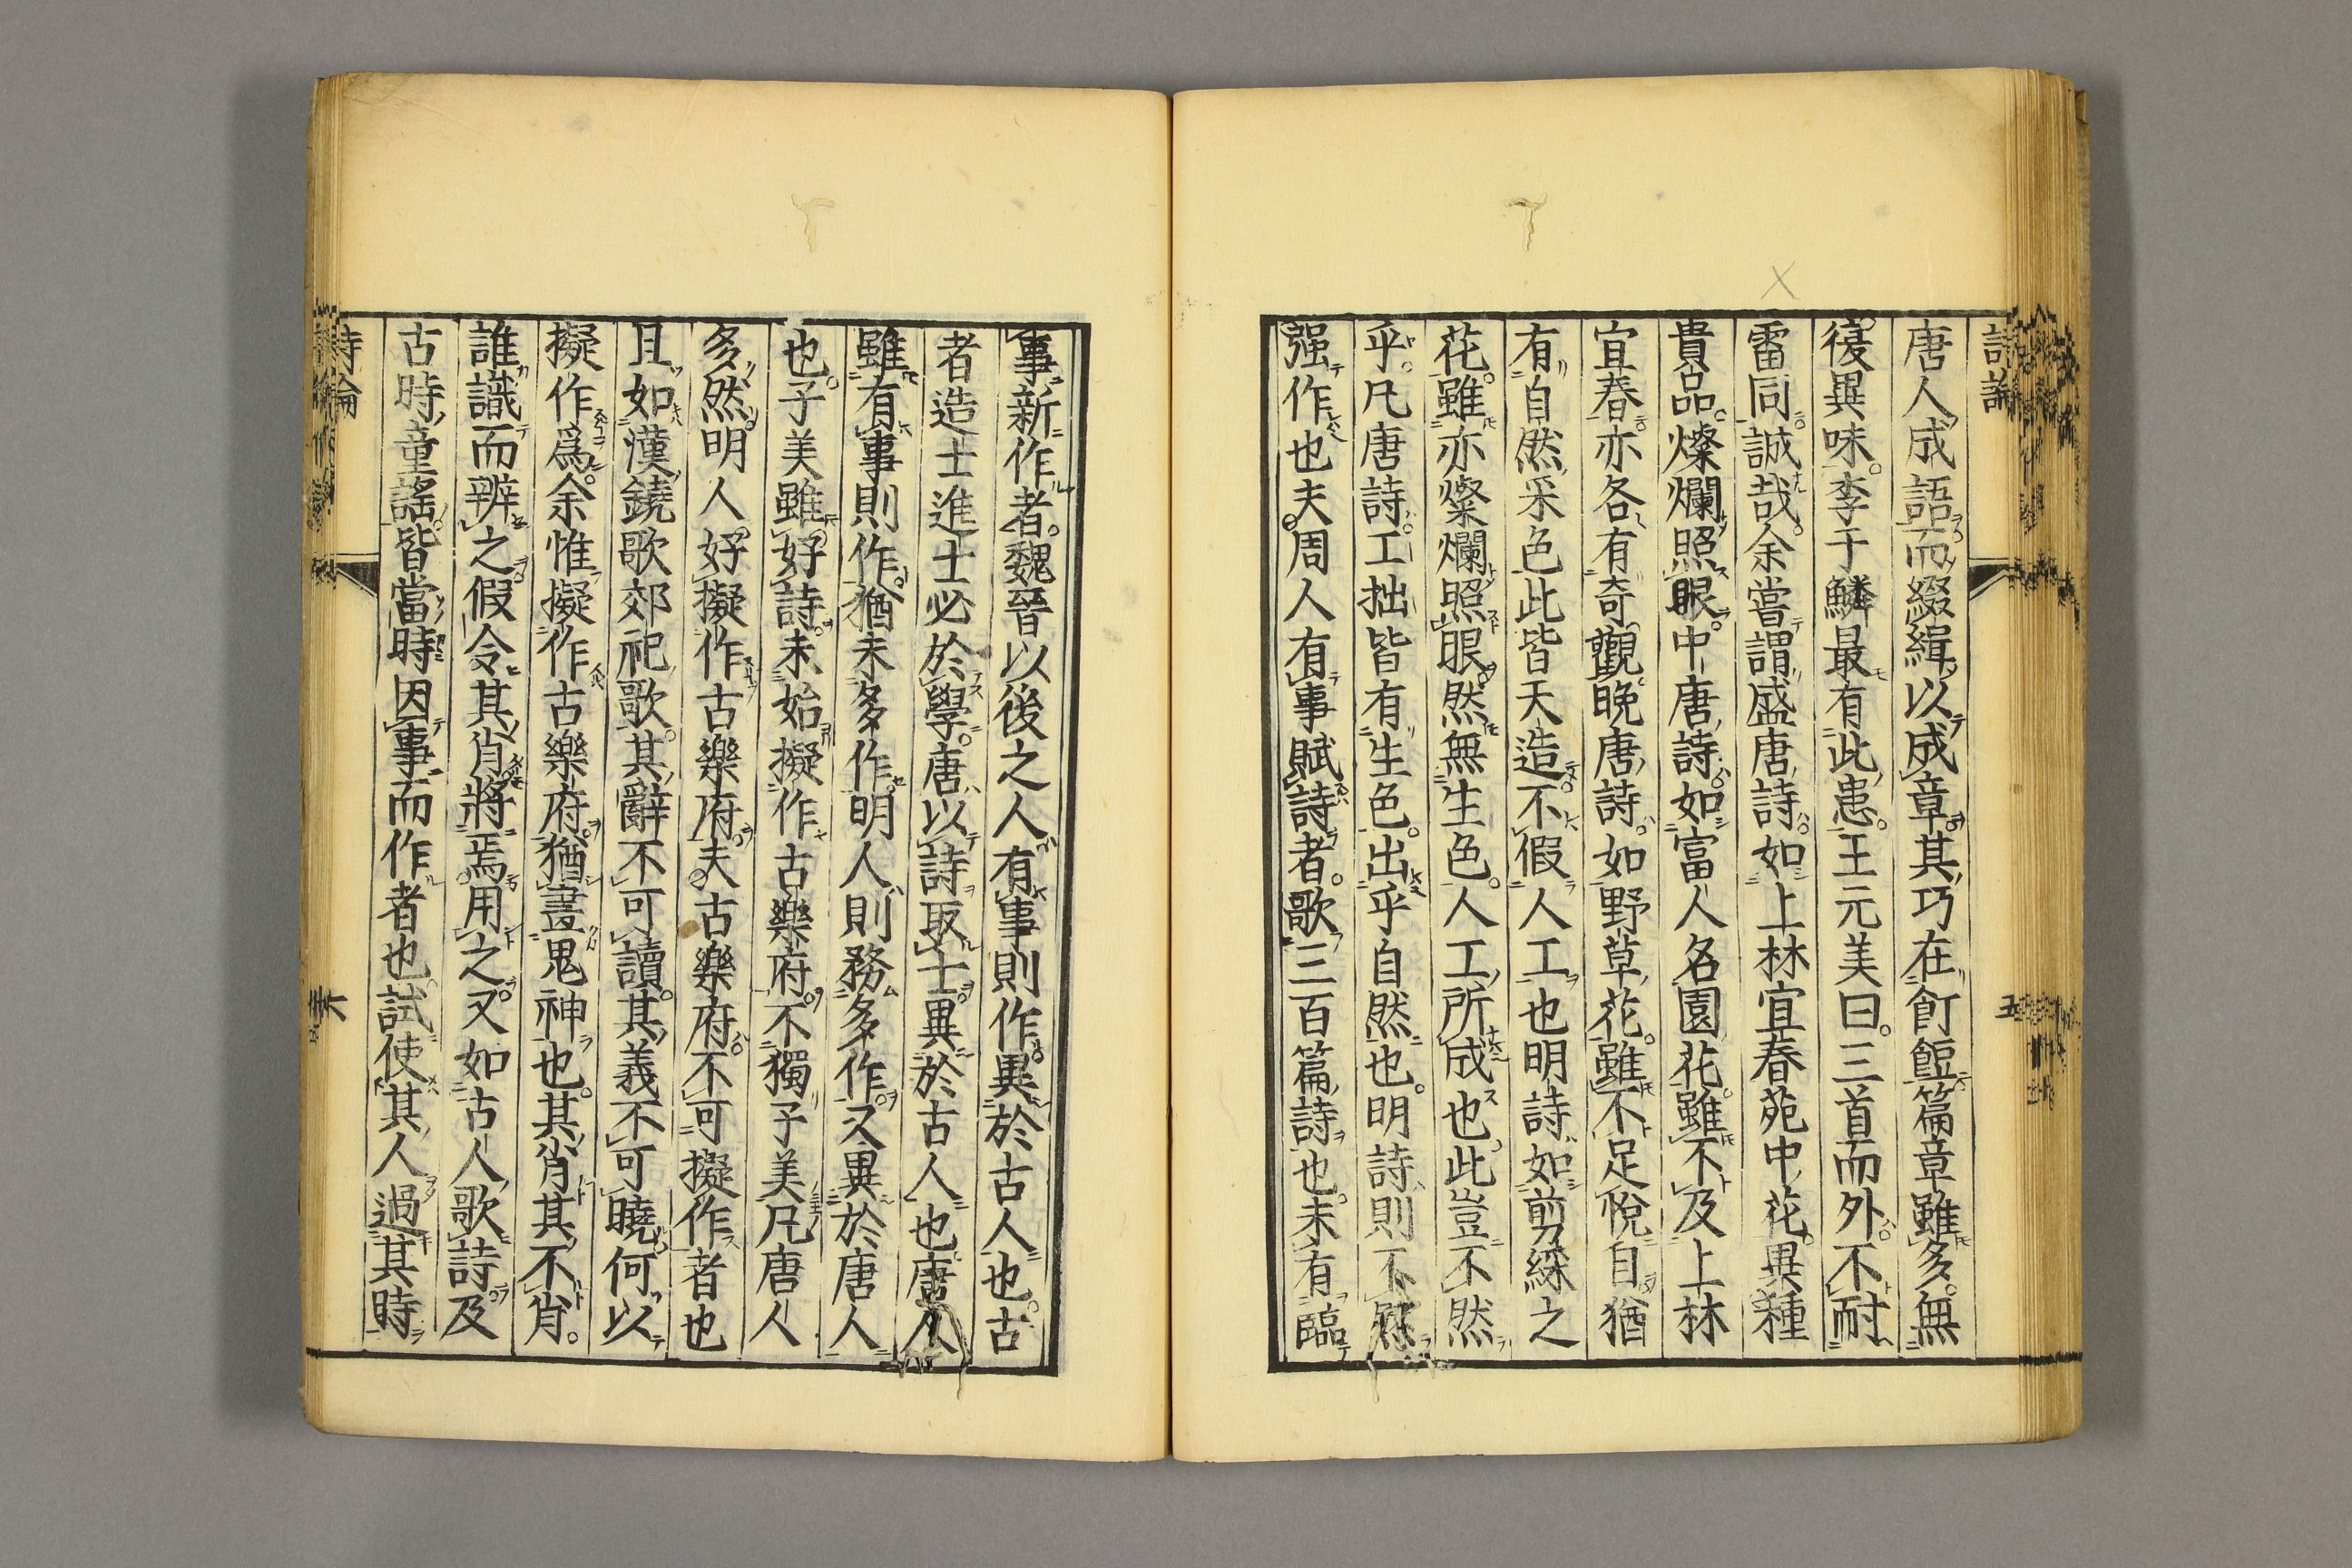 詩論
唐人成語而綴緝以成章其巧在飣餖篇章雖多無
復異味李于鱗最有此患王元美曰三首而外不耐
雷同誠哉余嘗謂盛唐詩如上林宜春苑中花異種
貴品燦爛照眼中唐詩如富人名園花雖不及上林
宜春亦各有奇觀晚唐詩如野草花雖不足悅自猶
有自然采色此皆天造不假人工也明詩如剪綵之
花雖亦燦爛照眼然無生色人工所成也此豈不然
乎凡唐詩工拙皆有生色出乎自然也明詩則不然
强作也夫周人有事賦詩者歌三百篇詩也未有臨
五
事新作者魏晉以後之人有事則作異於古人也古
者造士進士必於學唐以詩取士異於古人也唐人
雖有事則作猶未多作明人則務多作又異於唐人
也子美雖好詩未始擬作古樂府不獨子美凡唐人
多然明人好擬作古樂府夫古樂府不可擬作者也
且如漢鐃歌郊祀歌其辭不可讀其義不可曉何以
擬作爲余惟擬作古樂府猶畫鬼神也其肖其不肖
誰識而辨之假令其肖將焉用之又如古人歌詩及
古時童謠皆當時因事而作者也試使其人過其時
詩論
六